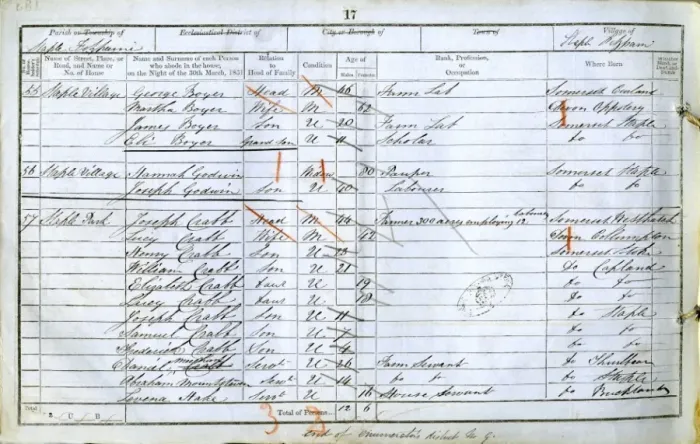 17
Parish or Township of Ecclesiastical District of City or Borough of Town of Village of
Staple Fitzpaine Staple Fitzpain
Name of Street, Place, or Road, and Name or No. of House
Name and Surname of each Person who abode in the house, on the Night of the 30th March, 1851
Relation to Head of Family
Condition
Age of
Males Females
Rank, Profession, or Occupation
Where Born
55 Staple Village George Boyer Head M 66 Farm Lab Somerset
Martha Boyer Wife M 62 Devon
James Boyer Son U 20 Farm Lab Somerset Staple
Eli Boyer Grand son U 11 Scholar do do
56 Staple Village Hannah Godwin Widow 80 Pauper Somerset Staple
Joseph Godwin Son U 40 Labourer do do
57 Staple Park Joseph Crabb Head M 44 Farmer 300 acres employing 12 labourers Somerset
Lucy Crabb Wife M 42 Devon Cullumpton
Henry Crabb Son U 23 Somerset Staple
William Crabb Son U 21 do Capland
Elizabeth Crabb Daur U 19 do do
Lucy Crabb Daur U 18 do do
Joseph Crabb Son U 11 do Staple
Samuel Crabb Son U 7 do do
Frederick Crabb Son U 4 do do
Daniel Servt U 26 Farm Servant do
Abraham Servt U 14 do do do Staple
Servt U 16 House Servant do Buckland
Total
2 U B
Total of Persons 12 6
End of Enumerator's District